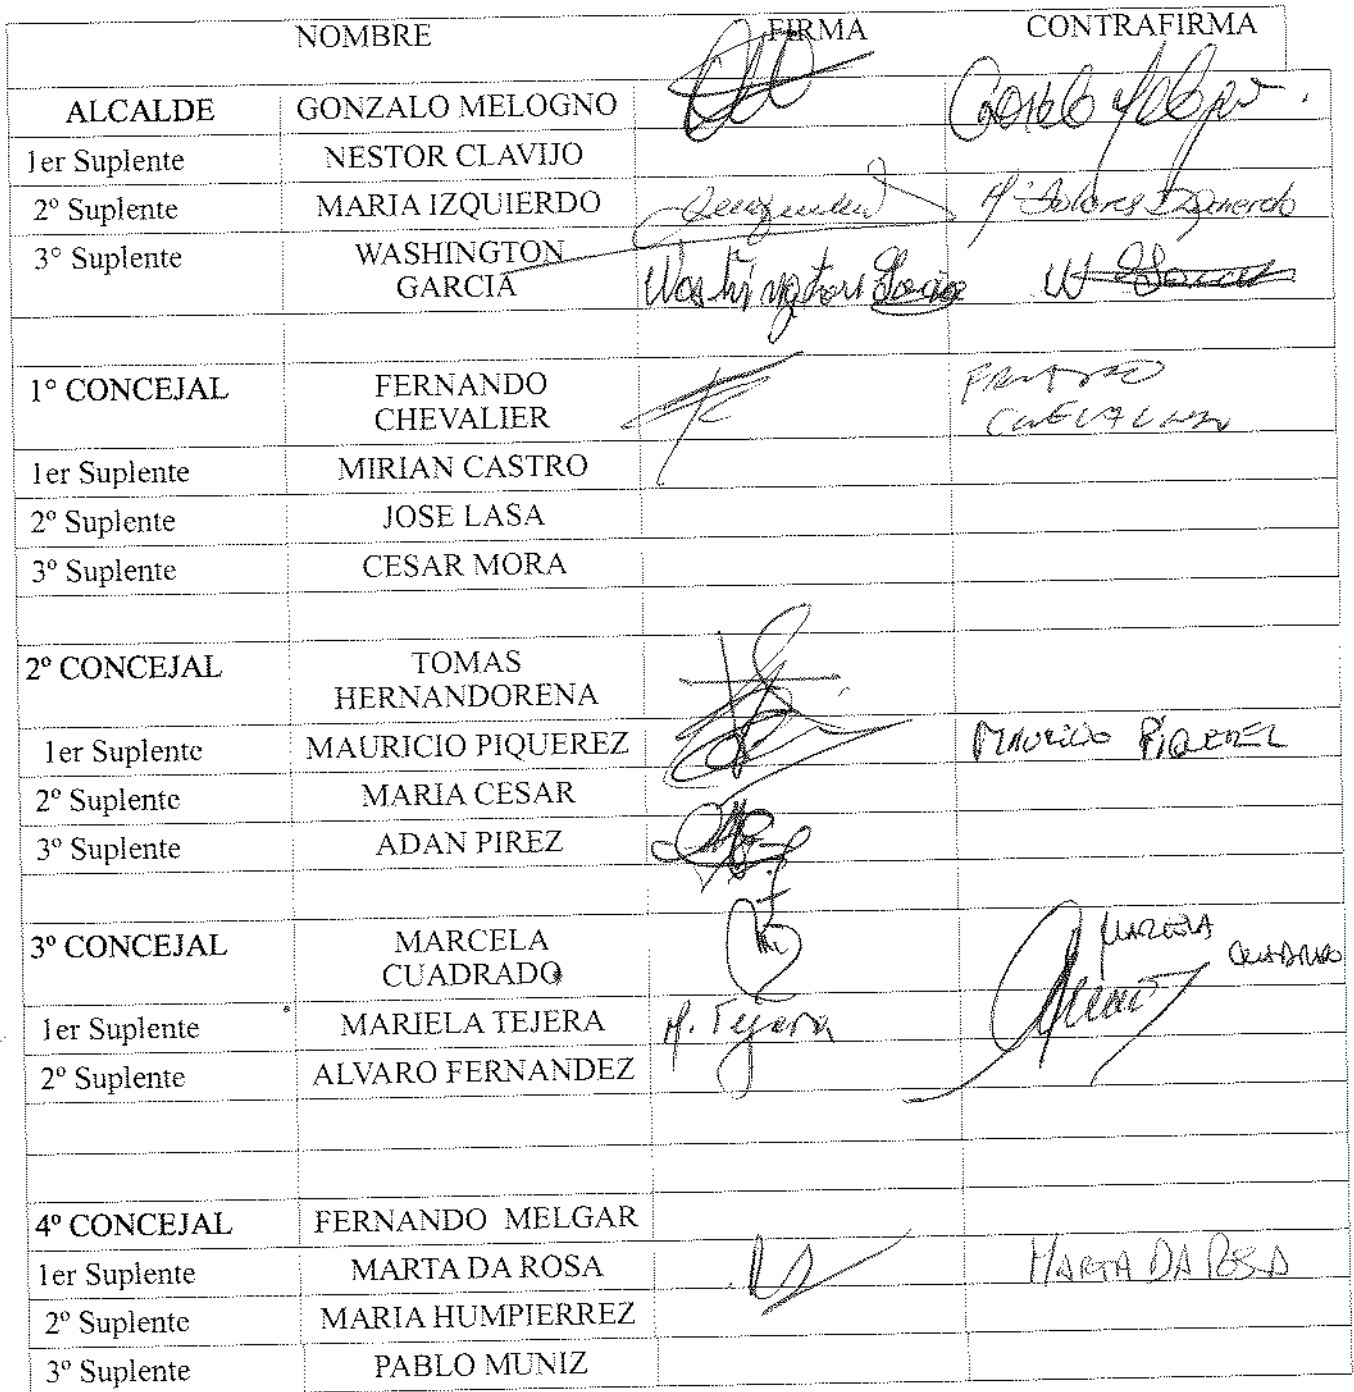 NOMBRE FIRMA CONTRAFIRMA
ALCALDE GONZALO MELOGNO
1er Suplente NESTOR CLAVIJO
2º Suplente MARIA IZQUIERDO Mª Dolores Izquierdo
3° Suplente WASHINGTON
GARCIA Washington Garcia W Garcia
1° CONCEJAL FERNANDO
CHEVALIER
1er Suplente MIRIAN CASTRO
2º Suplente JOSE LASA
3º Suplente CESAR MORA
2º CONCEJAL TOMAS
HERNANDORENA
1er Suplente MAURICIO PIQUEREZ MAURICIO PIQUEREZ
2º Suplente MARIA CESAR
3º Suplente ADAN PIREZ
3º CONCEJAL MARCELA MARCELA
CUADRADO CUADRADO
1er Suplente MARIELA TEJERA M. Tejera
2º Suplente ALVARO FERNANDEZ
4º CONCEJAL FERNANDO MELGAR
1er Suplente MARTA DA ROSA MARTA DA ROSA
2º Suplente MARIA HUMPIERREZ
3º Suplente PABLO MUNIZ